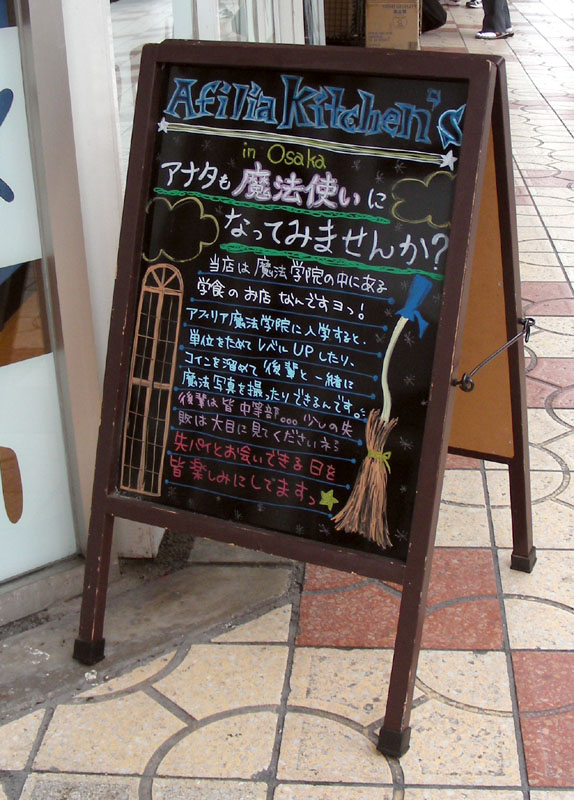 Afilia Kitchen's
in Osaka
アナタも魔法使いに
なってみませんか?
当店は魔法学院の中にある
学食のお店なんですヨっ!
アフィリア魔法学院に入学すると、
単位をためてレベルUPしたり、
コインを溜めて後輩と一緒に
魔法写真を撮ったりできるんです。
後輩は皆中等部。。。少しの失
敗は大目に見てくださいネ
失パイとお会いできる日を
皆楽しみにしてますっ